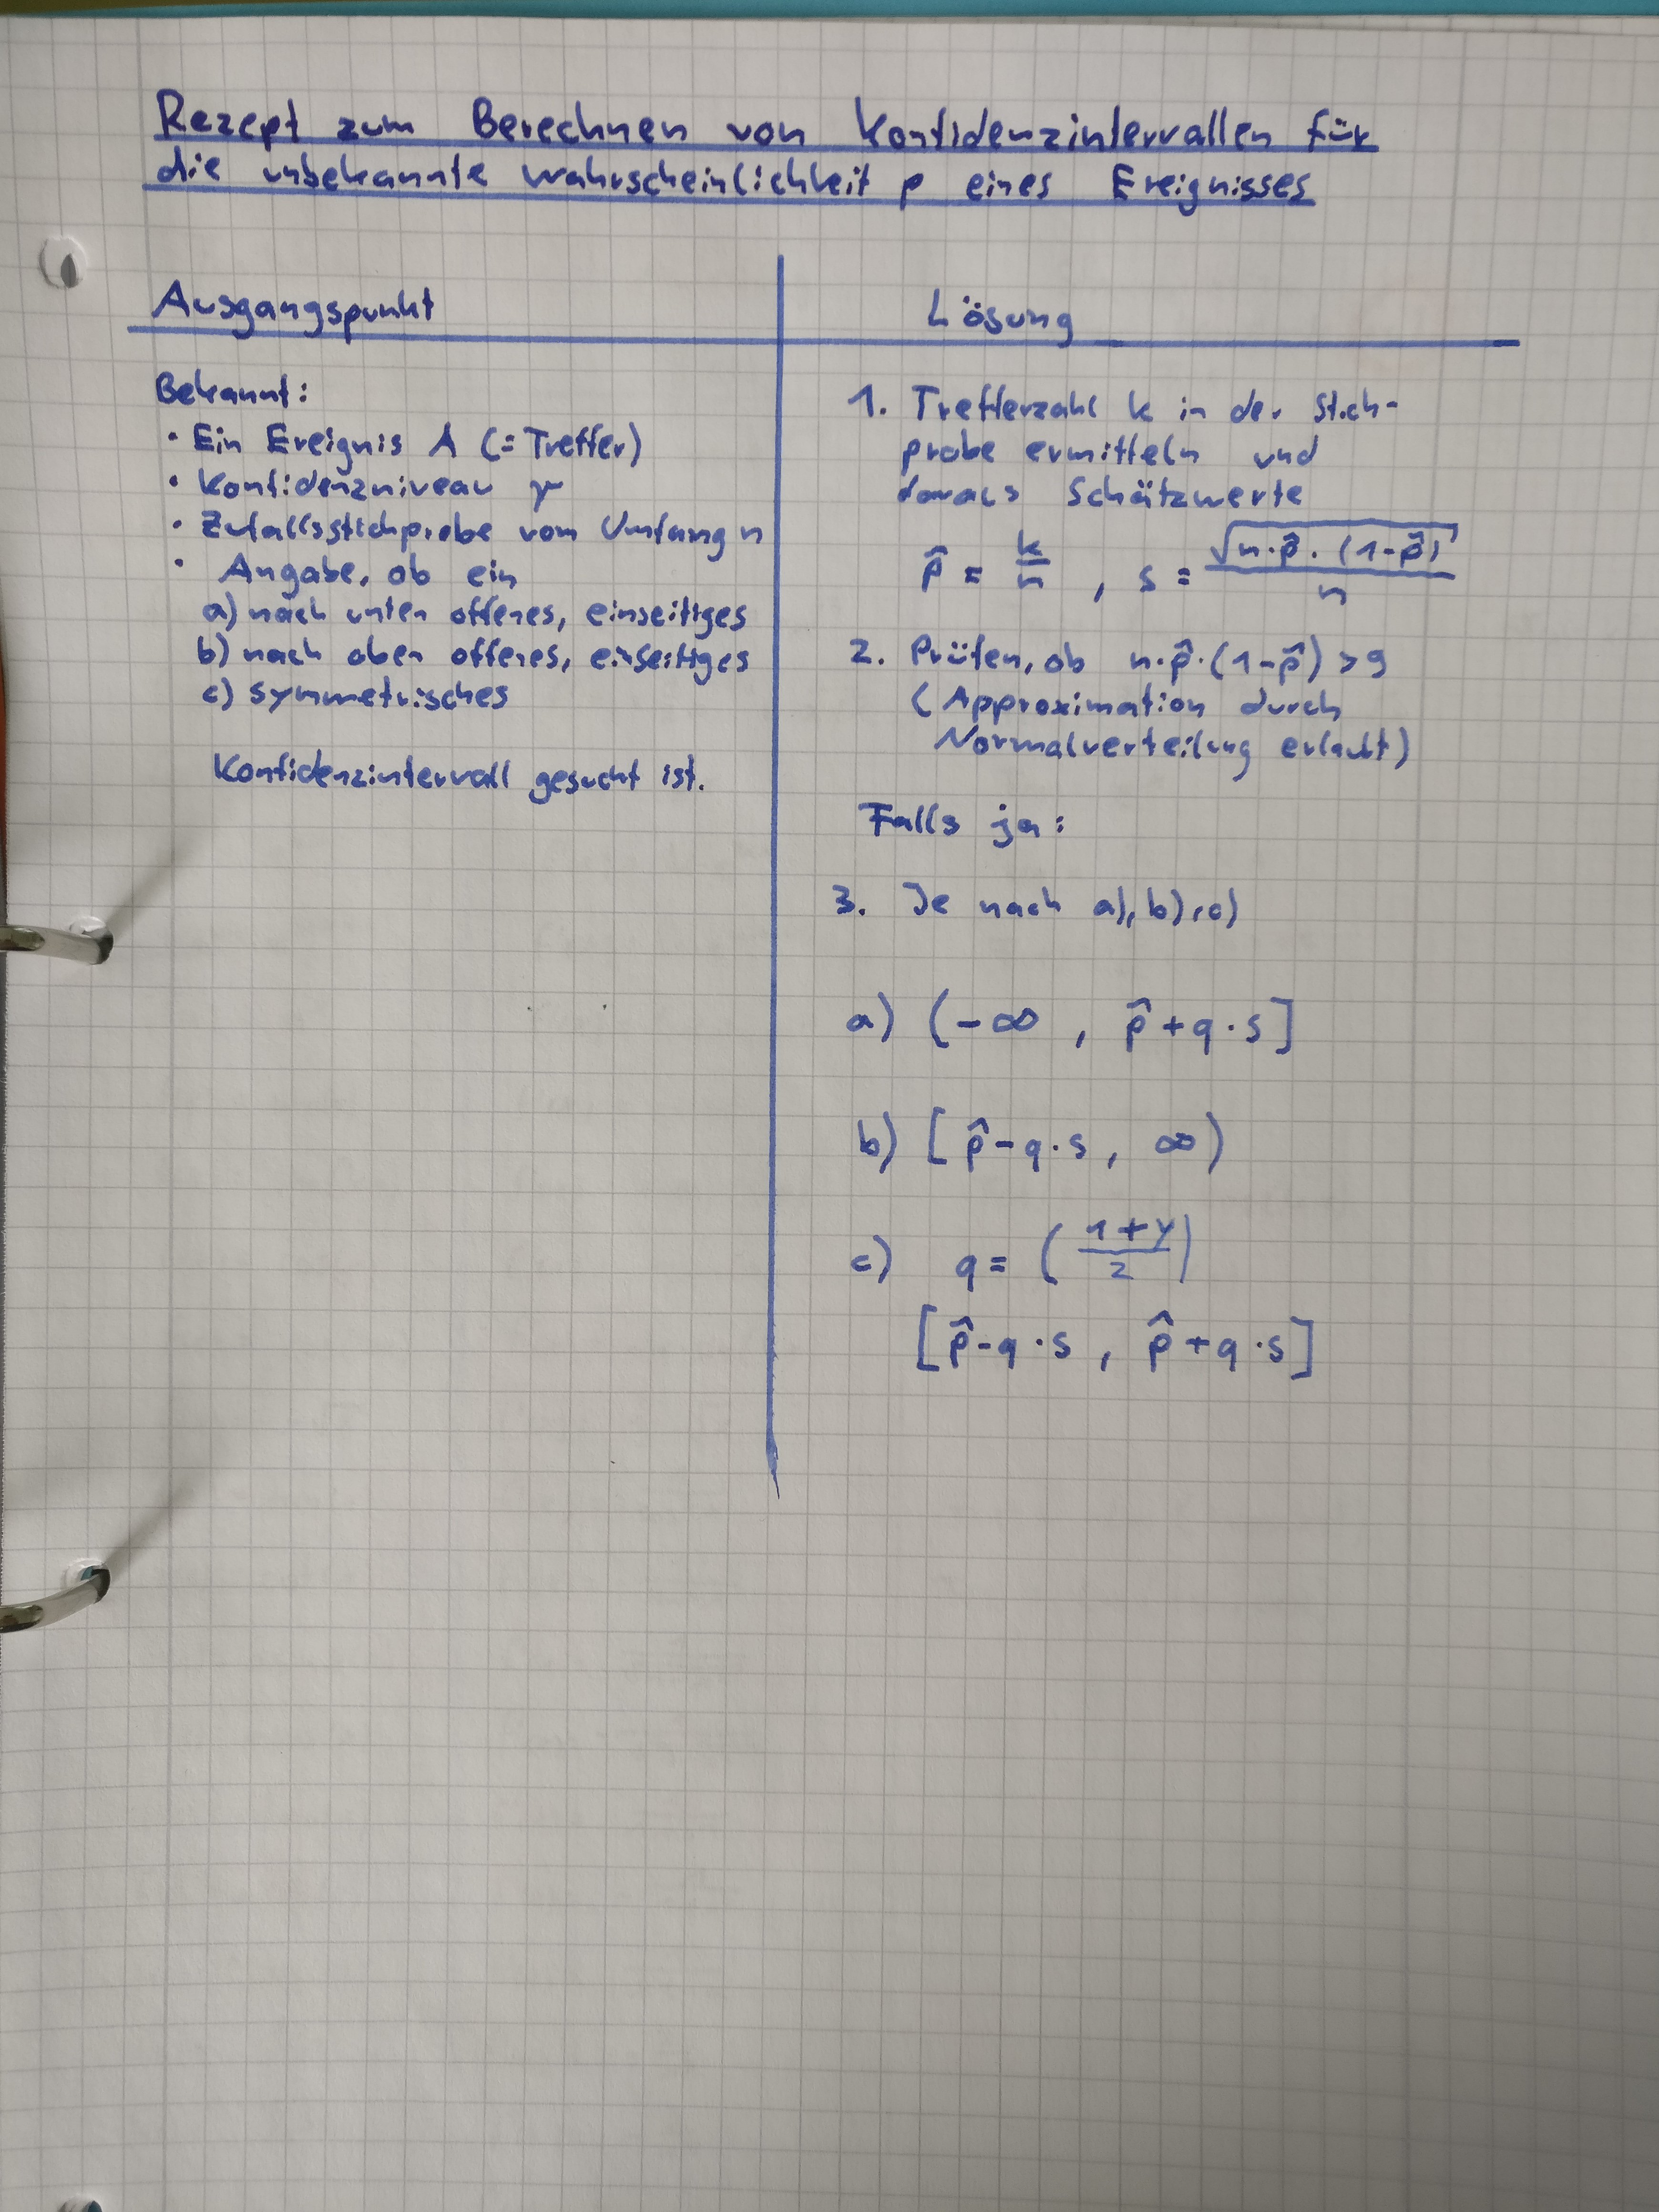 Rezept zum Berechnen von Konfidenzintervallen für
die unbekannte Wahrscheinlichkeit p eines Ereignisses
Ausgangspunkt
Bekannt:
• Ein Ereignis A (= Treffer)
• Konfidenzniveau γ
• Zufallsstichprobe vom Umfang n
• Angabe, ob ein
a) nach unten offenes, einseitiges
b) nach oben offenes, einseitiges
c) symmetrisches
Konfidenzintervall gesucht ist.
Lösung
1. Trefferzahl k in der Stich-
probe ermitteln und
daraus Schätzwerte
p̂ = k/n , s = √(n·p̂·(1-p̂))/n
2. Prüfen, ob n·p̂·(1-p̂) > 9
(Approximation durch
Normalverteilung erlaubt)
Falls ja:
3. Je nach a), b), c)
a) (-∞ , p̂+q·s]
b) [p̂-q·s, ∞)
c) q = ((1+γ)/2)
[p̂-q·s , p̂+q·s]